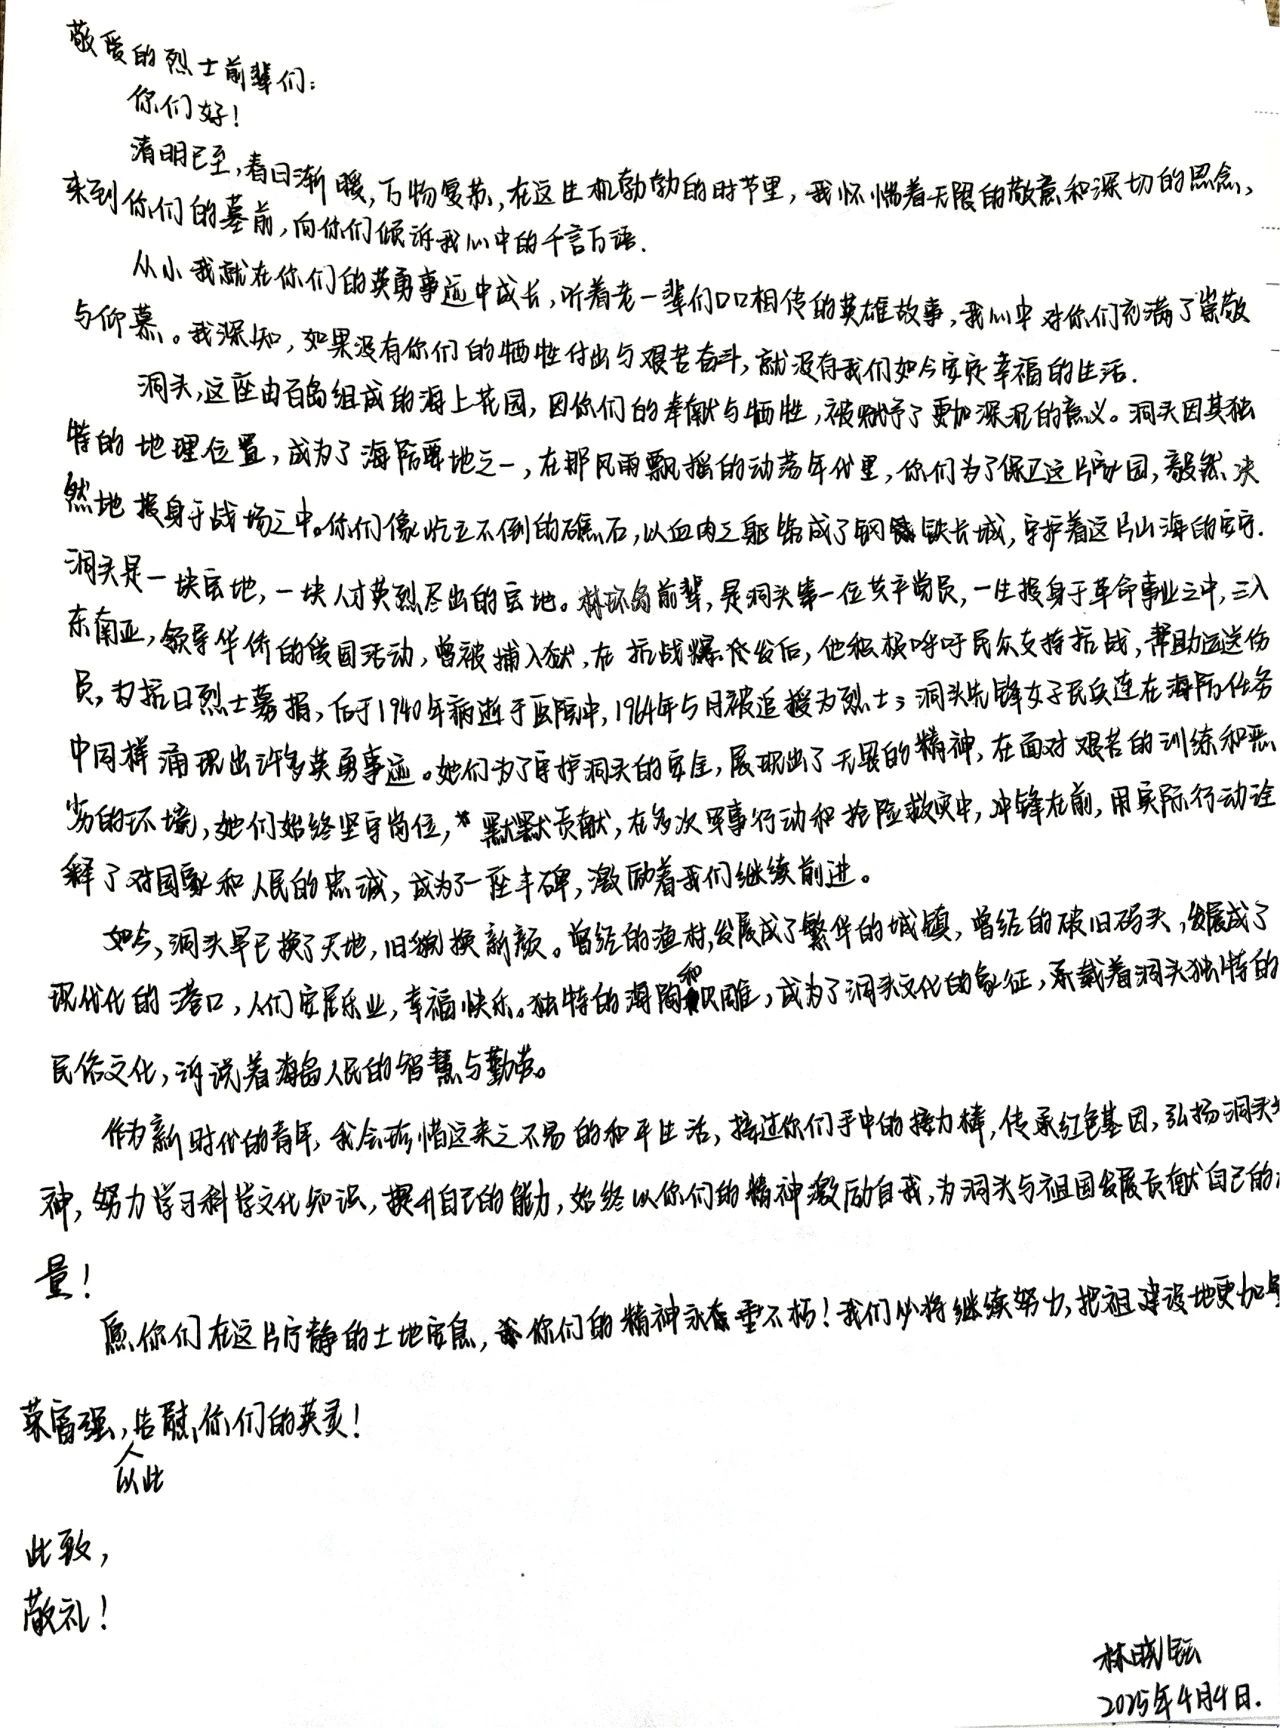 敬爱的烈士前辈们：
你们好！
清明已至，春日渐暖，万物复苏，在这生机勃勃的时节里，我怀惴着无限的敬意和深切的思念，
来到你们的墓前，向你们倾诉我心中的千言万语．
从小我就在你们的英勇事迹中成长，听着老一辈们口口相传的英雄故事，我心中对你们充满了崇敬
与仰慕。我深知，如果没有你们的牺牲付出与艰苦奋斗，就没有我们如今安定幸福的生活．
洞头，这座由百岛组成的海上花园，因你们的奉献与牺牲，被赋予了更加深沉的意义。洞头因其独
特的地理位置，成为了海防要地之一，在那风雨飘摇的动荡年代里，你们为了保卫这片家园，毅然决
然地投身于战场之中。你们像屹立不倒的礁石，以血肉之躯铸成了钢铁长城，守护着这片山海的安宁．
洞头是一块宝地，一块人才英烈尽出的宝地。林环岛前辈，是洞头第一位共产党员，一生投身于革命事业之中，三入
东南亚，领导华侨的爱国活动，曾被捕入狱，在抗战爆发后，他积极呼吁民众支持抗战，帮助运送伤
员，为抗日烈士募捐，后于1940年病逝于医院中，1964年5月被追授为烈士；洞头先锋女子民兵连在海防任务
中同样涌现出许多英勇事迹。她们为了守护洞头的安全，展现出了无畏的精神，在面对艰苦的训练和恶
劣的环境，她们始终坚守岗位，默默贡献，在多次军事行动和抢险救灾中，冲锋在前，用实际行动诠
释了对国家和人民的忠诚，成为了一座丰碑，激励着我们继续前进。
如今，洞头早已换了天地，旧貌换新颜。曾经的渔村，发展成了繁华的城镇，曾经的破旧码头，发展成了
现代化的港口，人们安居乐业，幸福快乐。独特的海陶和贝雕，成为了洞头文化的象征，承载着洞头独特的
民俗文化，诉说着海岛人民的智慧与勤劳。
作为新时代的青年，我会珍惜这来之不易的和平生活，接过你们手中的接力棒，传承红色基因，弘扬洞头
神，努力学习科学文化知识，提升自己的能力，始终以你们的精神激励自我，为洞头与祖国发展贡献自己的
量！
愿你们在这片宁静的土地安息，你们的精神永垂不朽！我们必将继续努力，把祖建设地更加
荣富强，以此告慰你们的英灵！
此致，
敬礼！
林晓
2025年4月4日．